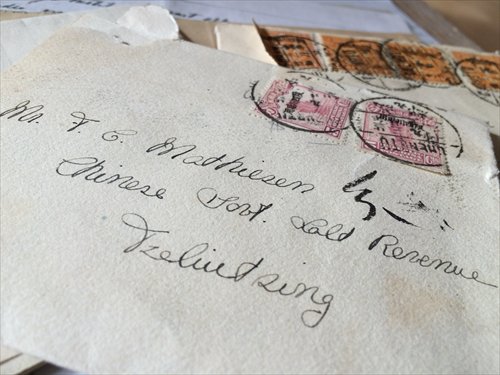 Mr. F. C. Mathiesen
Chinese Govt. Salt Revenue
Tzeliutsing
CHENGTU